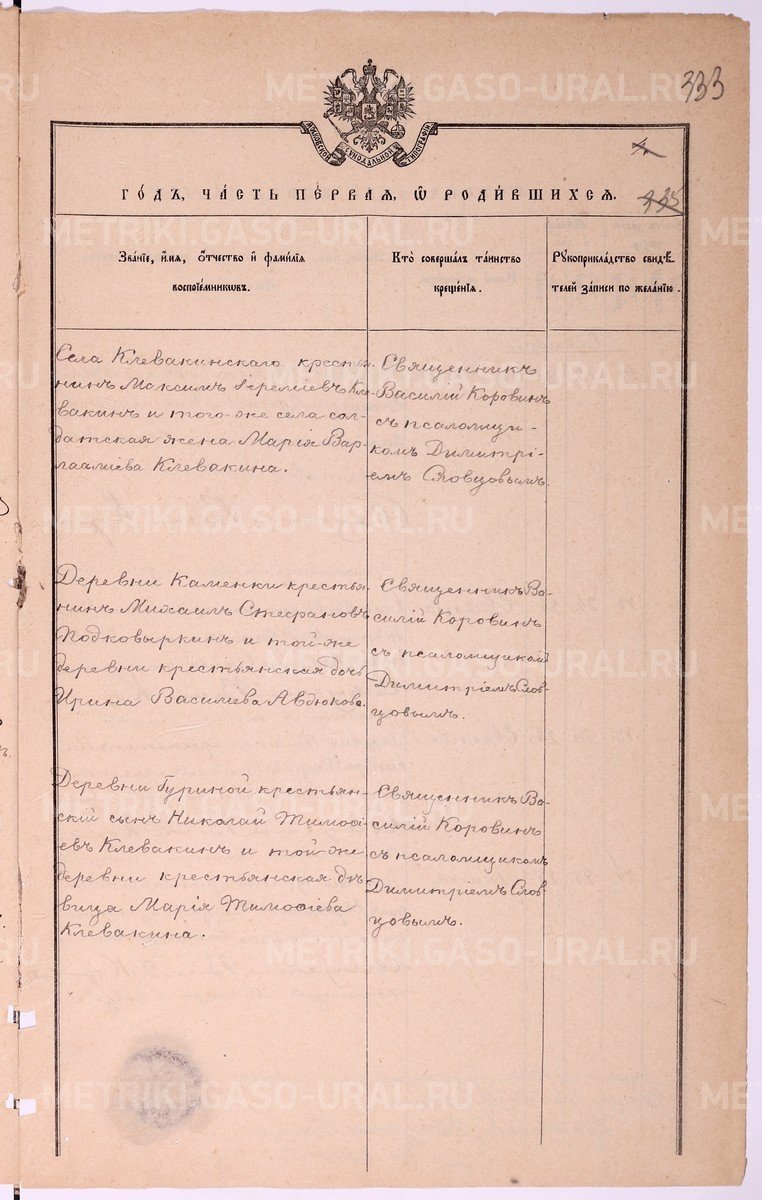 333
МОСКОВСКОЙ СѴНОДАЛЬНОЙ ТИПОГРАФІИ
335
ГОДЪ, ЧАСТЬ ПЕРВАЯ, Ѡ РОДИВШИХСЯ.
Званіе, имя, отчество и фамилія
воспріемниковъ.
Кто совершалъ таинство
крещенія.
Рукоприкладство свидѣ
телей записи по желанію.
Села Клевакинскаго кресть
нинъ Максимъ Іереміевъ Кле
вакинъ и того-же села сол-
датская жена Марія Вар-
лааміева Клевакина.
Священникъ
Василій Коровинъ
съ псаломщи-
комъ Димитрі-
емъ Словцовымъ
Деревни Каменки крестья-
нинъ Михаилъ Стефановъ
Подковыркинъ и той-же
деревни крестьянская дочь
Ирина Василіева Авдюкова.
Священникъ Ва-
силій Коровинъ
съ псаломщикомъ
Димитріемъ Слов-
цовымъ.
Деревни Гуриной крестьян-
скій сынъ Николай Тимоѳі-
евъ Клевакинъ и той-же
деревни крестьянская дѣ-
вица Марія Тимоѳіева
Клевакина.
Священникъ Ва-
силій Коровинъ
съ псаломщикомъ
Димитріемъ Слов-
цовымъ.
METRIKI.GASO-URAL.RU